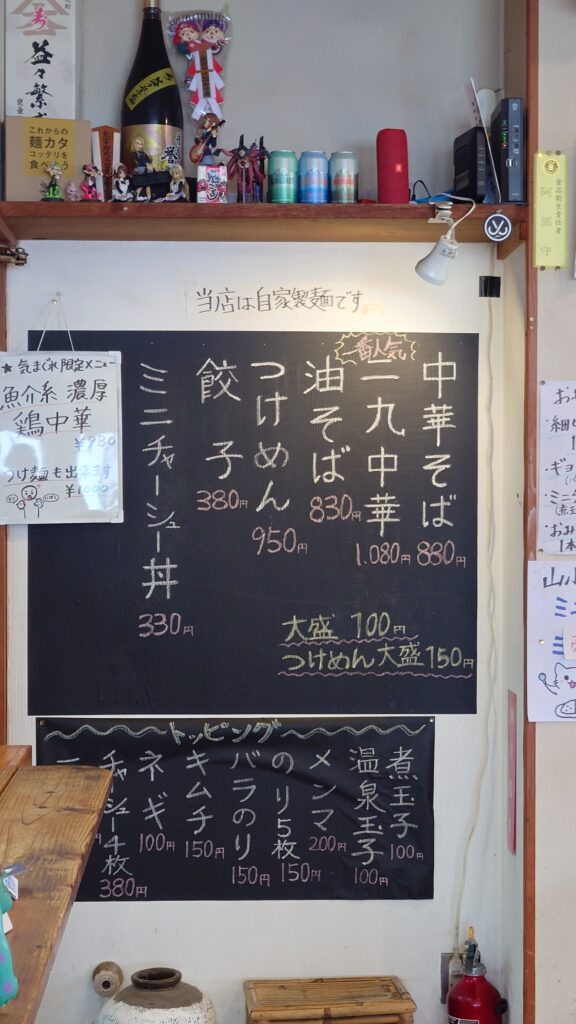 益々繁
これからの
麺カタ
コッテリを
食べよう
食品衛生責任者
阿部守
当店は自家製麺です
一番人気
中華そば
880円
一九中華
1.080円
油そば
830円
つけめん
950円
餃子
380円
ミニチャーシュー丼
330円
大盛 100円
つけめん大盛150円
★気まぐれ限定メニュー
魚介系 濃厚
鶏中華
¥980
つけ麺も出来ます
¥1000
トッピング
煮玉子
100円
温泉玉子
100円
メンマ
200円
のり5枚
150円
バラのり
150円
キムチ
150円
ネギ
100円
チャーシュー4枚
380円